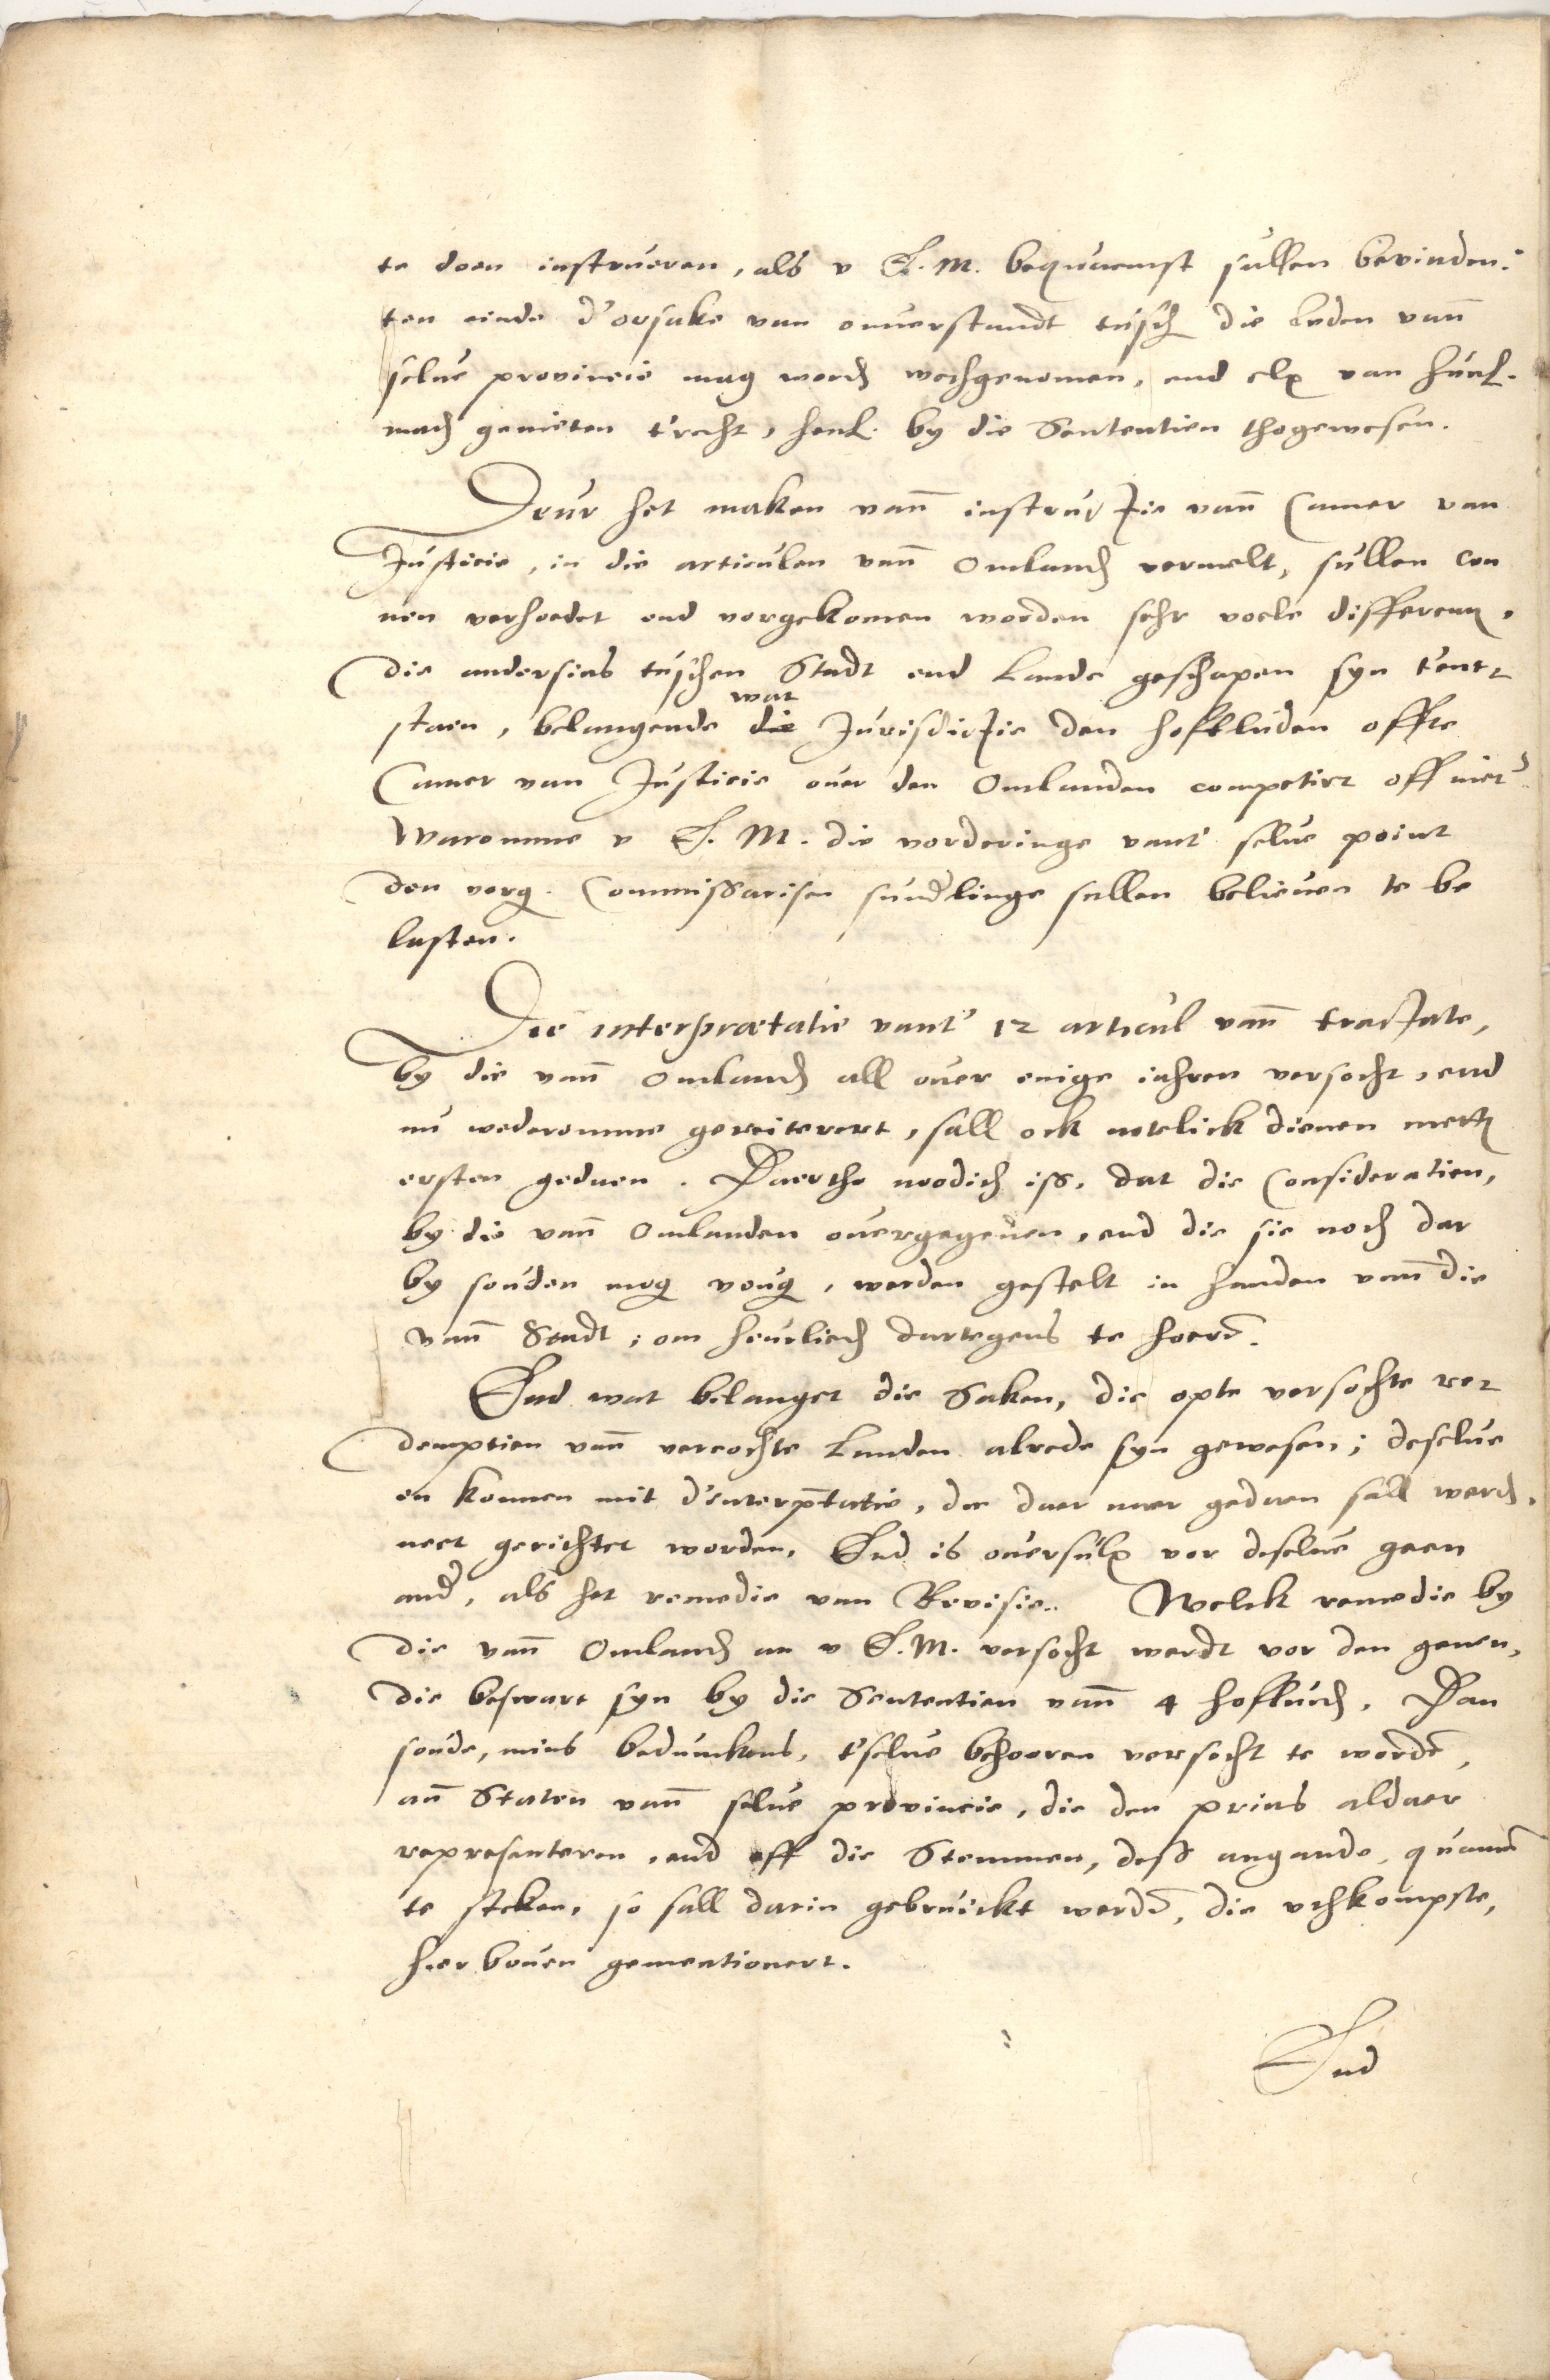 te doen instrueren, als v E. M. bequaemst sullen bevinden:
ten einde d'orsake van onverstandt tusch die Leden vann
selve provincie mag werd wechgenomen, end elx van hunl.
mach genieten t'recht, henl. by die Sententien thogewesen.
Deur het maken vann instructie vann Camer van
Justicie, in die articulen vann Omland vermelt, sullen con
nen verhoedet end vorgekomen worden sehr voele differenn,
die andersins tuschen Stadt end Lande geschapen syn t'ent-
staen, belangende wat die Jurisdictie den hoftluden offte
Camer van Justicie over den Omlanden competirt off niet.
Waromme v E. M. die vorderinge vant' selve point
den verg. Commissarisen sunderlinge sullen believen te be
lasten.
Die interpraetatie vant' 12 articul vann tractate,
by die vann Omland all over enige jahren versocht, end
nu wederomme gereiterert, sall ock notelick dienen mett
ersten gedaen. Daertho noodich iss, dat die Consideratien,
by die vann Omlanden overgegeven, end die sie noch dar
by souden mog voug, werden gestelt in handen vann die
vann Stadt; om heurlied dartegens te horen.
End wat belanget die Saken, die opte versochte re-
demptien vann vercochte Landen alrede syn gewesen; deselve
en konnen mit d'interptatie, die daer naer gedaen sall werd,
neet gerichtet worden. End is oversulx vor deselve geen
ander, als het remedie van Revisie. Welck remedie by
die vann Omland an v E. M. versocht werdt vor den genen,
die beswart syn by die Sententien vann 4 hoftlud. Dan
soude, mins beduinckens, t'selve behooren versocht te worden,
ann Staten vann selve provincie, die den prins aldaer
representeren, end off die Stemmen, dess angande, quamen
te steken, so sall darin gebruickt werden, die uthkompste,
hier boven gementionert.
End